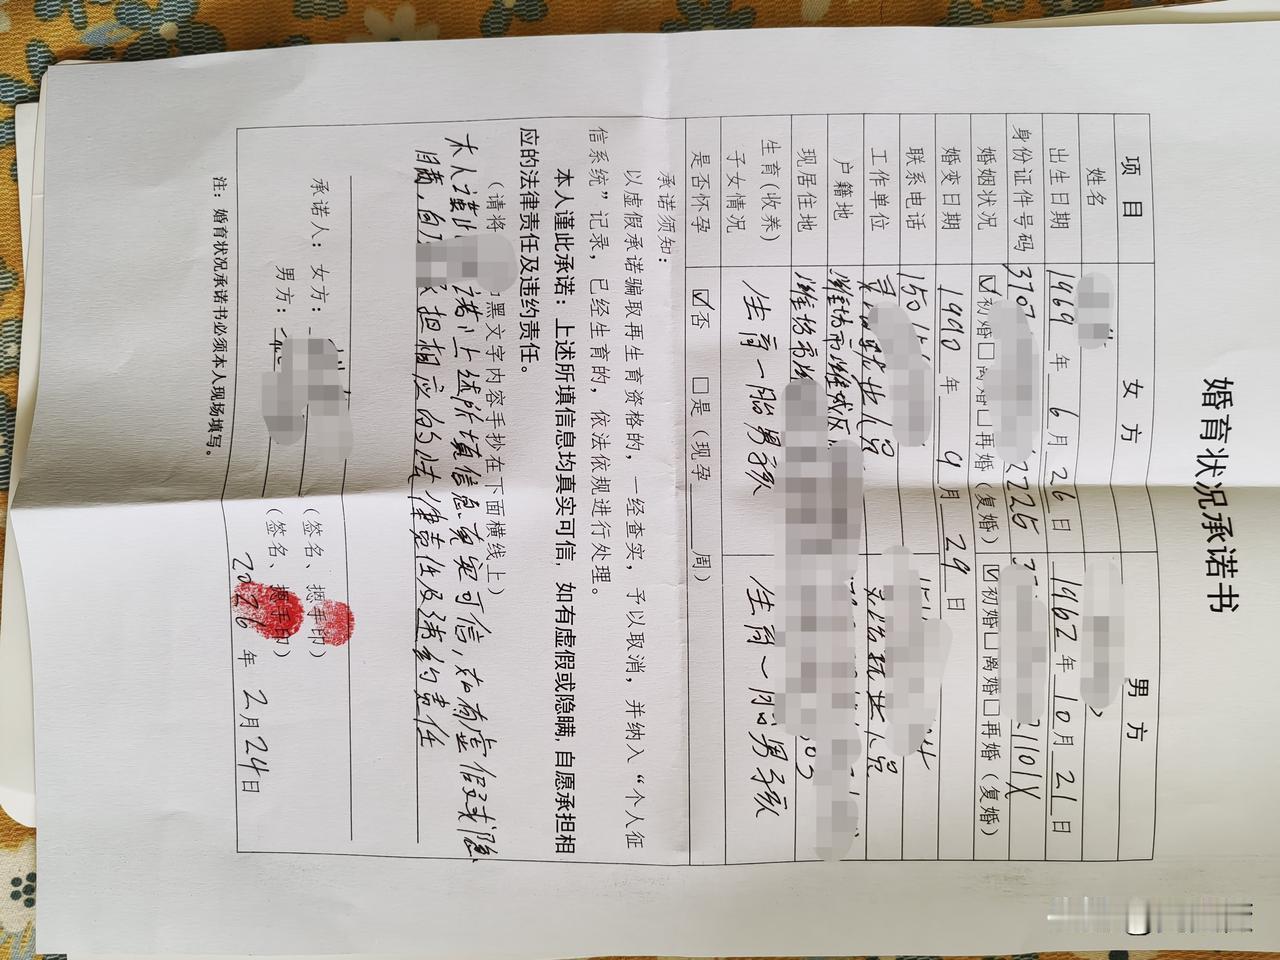 婚育状况承诺书
项 目 女 方 男 方
姓名
出生日期 1969 年 6 月 26 日 1962 年 10 月 21 日
身份证件号码 3707 2225 21101X
婚姻状况 ☑初婚□离婚□再婚（复婚） ☑初婚□离婚□再婚（复婚）
婚变日期 1990 年 9 月 29 日
联系电话 150
工作单位 业人员
户籍地 潍坊市潍城区
现居住地 潍坊市
生育（收养）
子女情况 生育一胎男孩 生育一胎男孩
是否怀孕 ☑否 □是（现孕 周）
承诺须知：
以虚假承诺骗取再生育资格的，一经查实，予以取消，并纳入“个人征
信系统”记录，已经生育的，依法依规进行处理。
本人谨此承诺：上述所填信息均真实可信，如有虚假或隐瞒，自愿承担相
应的法律责任及违约责任。
（请将 黑文字内容手抄在下面横线上）
本人谨此 诺：上述所填信息真实可信，如有虚假或隐
瞒，自 担相应的法律责任及违约责任
承诺人：女方： （签名、摁手印）
男方： （签名、摁手印）
2026 年 2月24日
注：婚育状况承诺书必须本人现场填写。